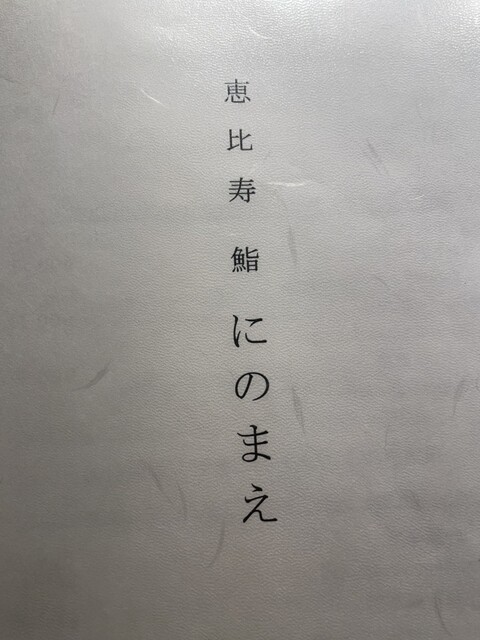 恵比寿 鮨 にのまえ